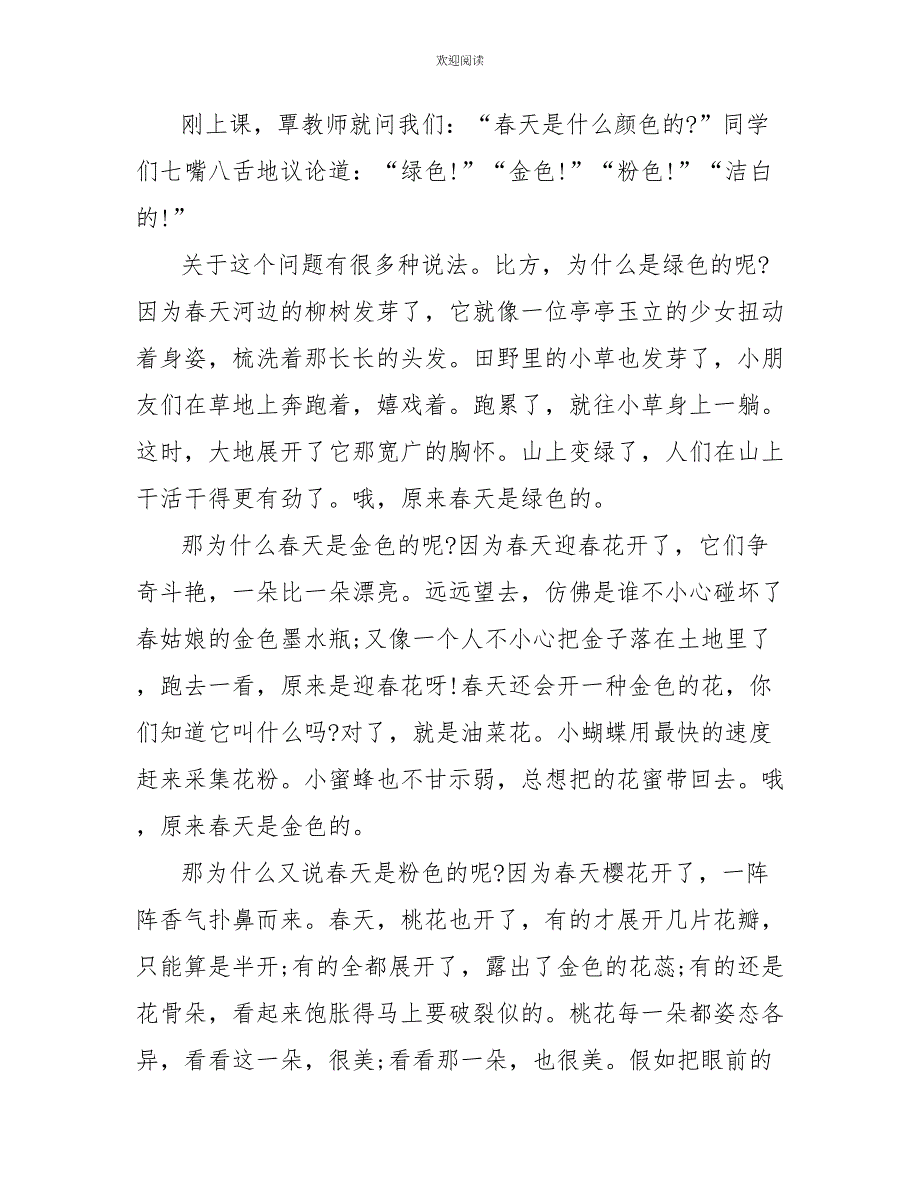 欢迎阅读
刚上课，覃教师就问我们：“春天是什么颜色的?”同学
们七嘴八舌地议论道：“绿色!”“金色!”“粉色!”“洁白
的!”
关于这个问题有很多种说法。比方，为什么是绿色的呢?
因为春天河边的柳树发芽了，它就像一位亭亭玉立的少女扭动
着身姿，梳洗着那长长的头发。田野里的小草也发芽了，小朋
友们在草地上奔跑着，嬉戏着。跑累了，就往小草身上一躺。
这时，大地展开了它那宽广的胸怀。山上变绿了，人们在山上
干活干得更有劲了。哦，原来春天是绿色的。
那为什么春天是金色的呢?因为春天迎春花开了，它们争
奇斗艳，一朵比一朵漂亮。远远望去，仿佛是谁不小心碰坏了
春姑娘的金色墨水瓶;又像一个人不小心把金子落在土地里了
，跑去一看，原来是迎春花呀!春天还会开一种金色的花，你
们知道它叫什么吗?对了，就是油菜花。小蝴蝶用最快的速度
赶来采集花粉。小蜜蜂也不甘示弱，总想把的花蜜带回去。哦
，原来春天是金色的。
那为什么又说春天是粉色的呢?因为春天樱花开了，一阵
阵香气扑鼻而来。春天，桃花也开了，有的才展开几片花瓣，
只能算是半开;有的全都展开了，露出了金色的花蕊;有的还是
花骨朵，看起来饱胀得马上要破裂似的。桃花每一朵都姿态各
异，看看这一朵，很美;看看那一朵，也很美。假如把眼前的